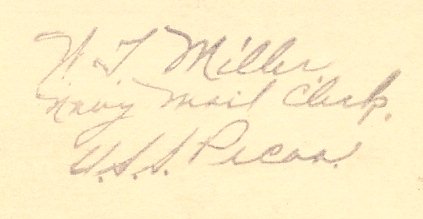 W. T. Miller
Navy Mail Clerk.
U.S.S. Pecos.